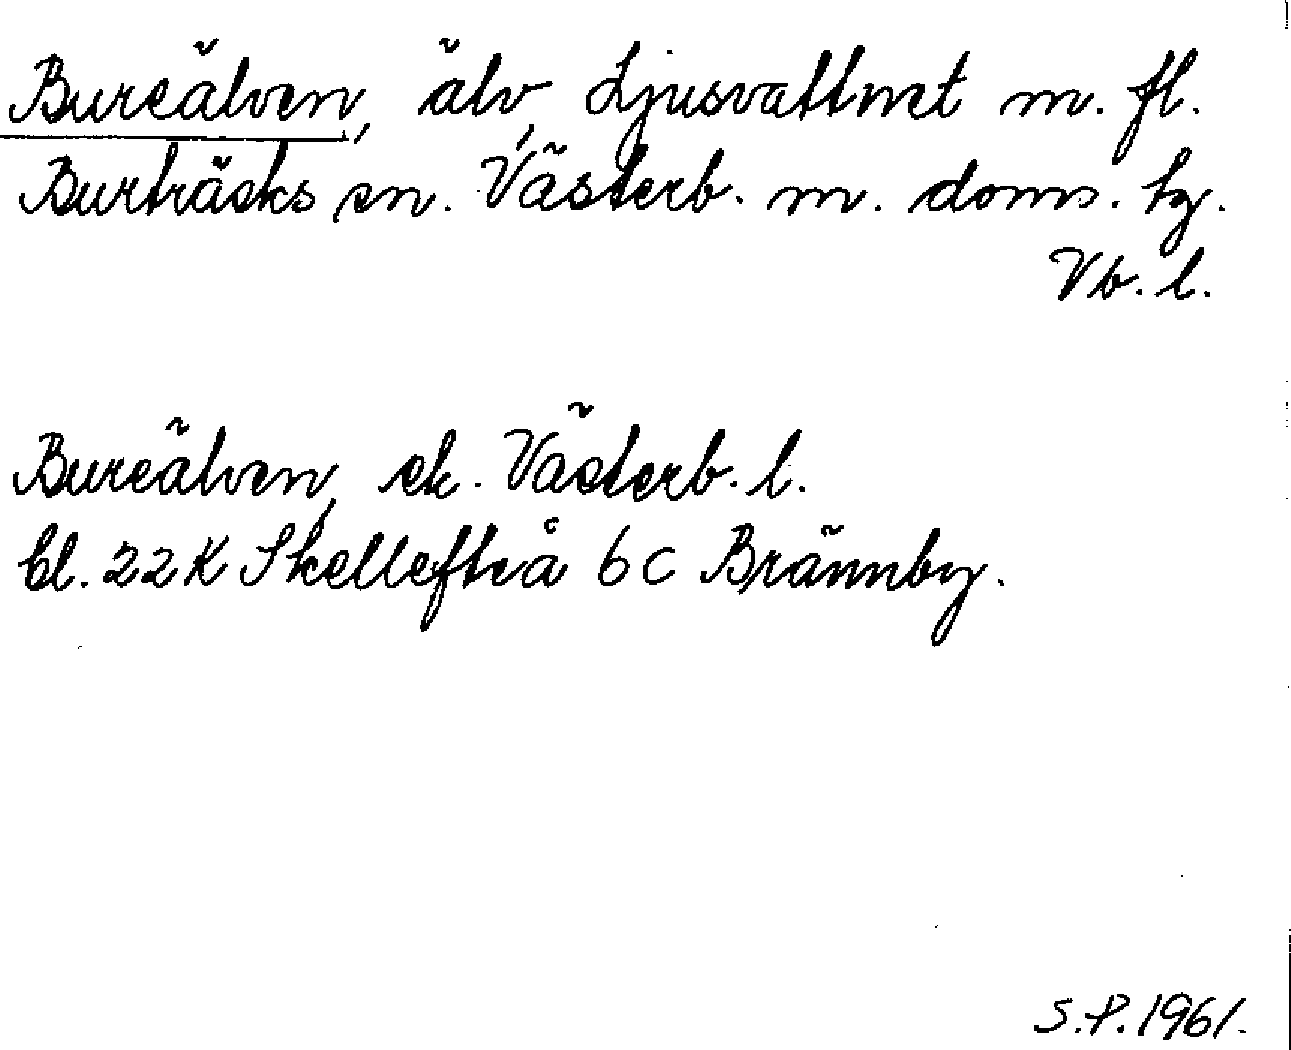 Bureälven, älv, Ljusvattnet m. fl.
Burträsks sn. Västerb. m. doms. tg.
Vb. l.
Bureälven, ek. Västerb. l.
bl. 22K Skellefteå 6 C Brännby.
S.P. 1961.